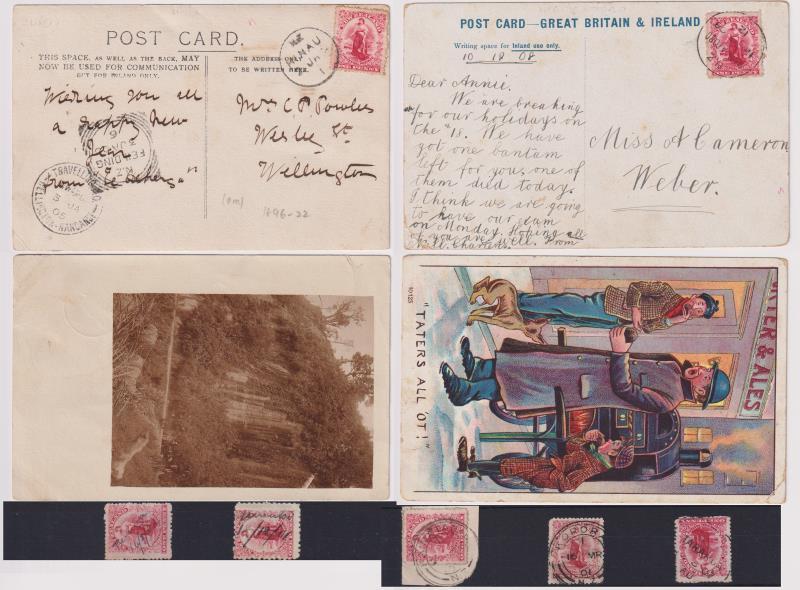 POST CARD.
THIS SPACE, AS WELL AS THE BACK, MAY
NOW BE USED FOR COMMUNICATION
BUT FOR INLAND ONLY.
THE ADDRESS ONLY
TO BE WRITTEN HERE.
Wishing you all
a happy New
Year
from
Mrs C P Powles
Wesley St.
Wellington
1896-22
N.Z
JA
FEILDING
N.Z.
POST CARD—GREAT BRITAIN & IRELAND
Writing space for Inland use only.
10 12 08
Dear Annie.
We are breaking
for our holidays on
the "18. We have
got one bantam
left for you, one of
them died today.
I think we are going
to have our exam
on Monday. Hoping all
of you are well. From
Miss A Cameron
Weber.
10125
"TATERS ALL 'OT!"
& ALES
MR
01